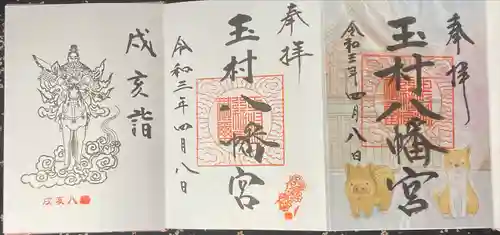 奉拝
玉村八幡宮
令和三年四月八日
奉拝
玉村八幡宮
令和三年四月八日
戌亥詣
戌亥八